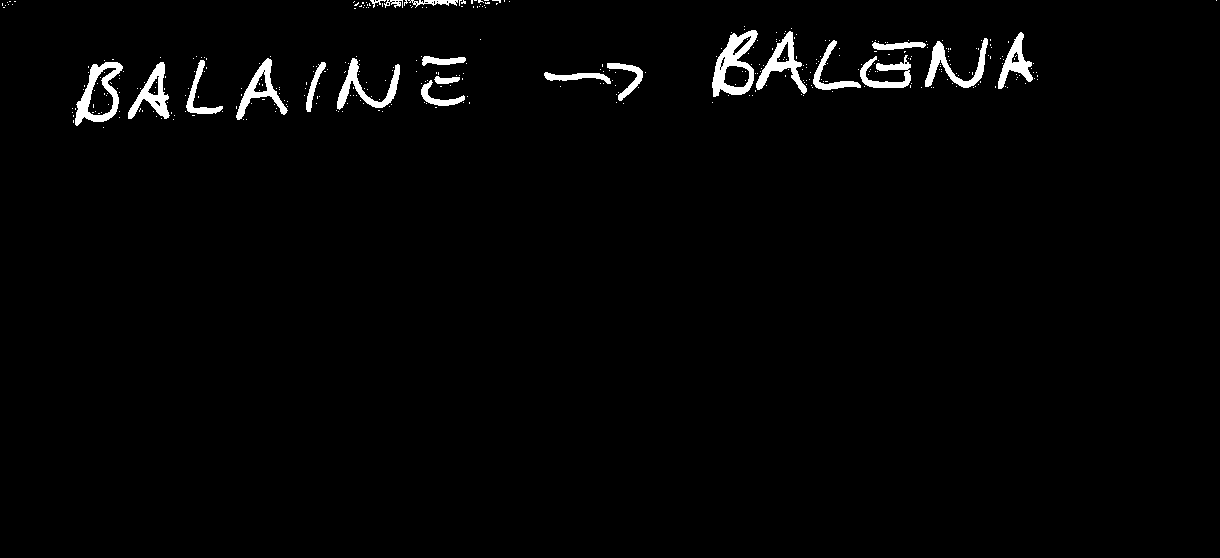 BALAINE → BALENA